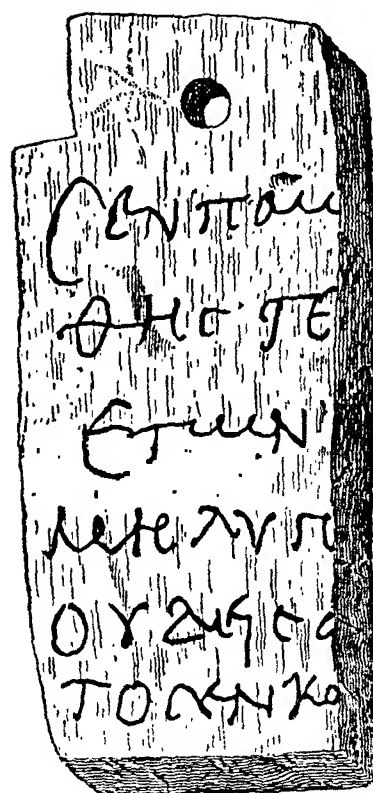 ϲενπαμ
θηϲ πε
ετων
μη λυπ
ουδηϲ α
τοϲ ην κο